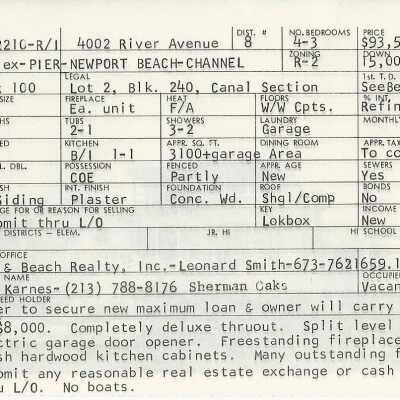 DIST. # NO. BEDROOMS PRICE
2210-R/I 4002 River Avenue 8 4-3 $93,5
ZONING DOWN
ex-PIER-NEWPORT BEACH-CHANNEL R-2 15,00
LEGAL 1st. T. D.
100 Lot 2, Blk. 240, Canal Section SeeBe
SIZE FIREPLACE HEAT FLOORS % INT.
Ea. unit F/A W/W Cpts. Refin
TUBS SHOWERS LAUNDRY MONTHLY
2-1 3-2 Garage
KITCHEN APPR. SQ. FT. DINING ROOM APPR. TAX
B/I 1-1 3100+garage Area To co
DBL. POSSESSION FENCED APPR. AGE SEWERS
COE Partly New Yes
INT. FINISH FOUNDATION ROOF BONDS
Siding Plaster Conc. Wd. Shgl/Comp No
GE FOR OR REASON FOR SELLING KEY INCOME
bmit thru L/O Lokbox New
DISTRICTS - ELEM. JR. HI HI SCHOOL
OFFICE
& Beach Realty, Inc.-Leonard Smith-673-7621 659.1
NAME OCCUPIE
Karnes- (213) 788-8176 Sherman Oaks Vacan
EED HOLDER
er to secure new maximum loan & owner will carry
$8,000. Completely deluxe thruout. Split level
ctric garage door opener. Freestanding fireplace
sh hardwood kitchen cabinets. Many outstanding f
bmit any reasonable real estate exchange or cash
u L/O. No boats.